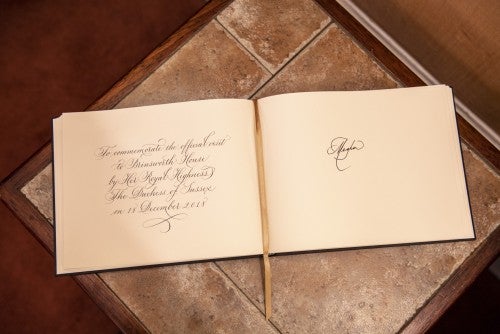 To commemorate the official visit
to Brinsworth House
by Her Royal Highness
The Duchess of Sussex
on 18 December 2018
Meghan